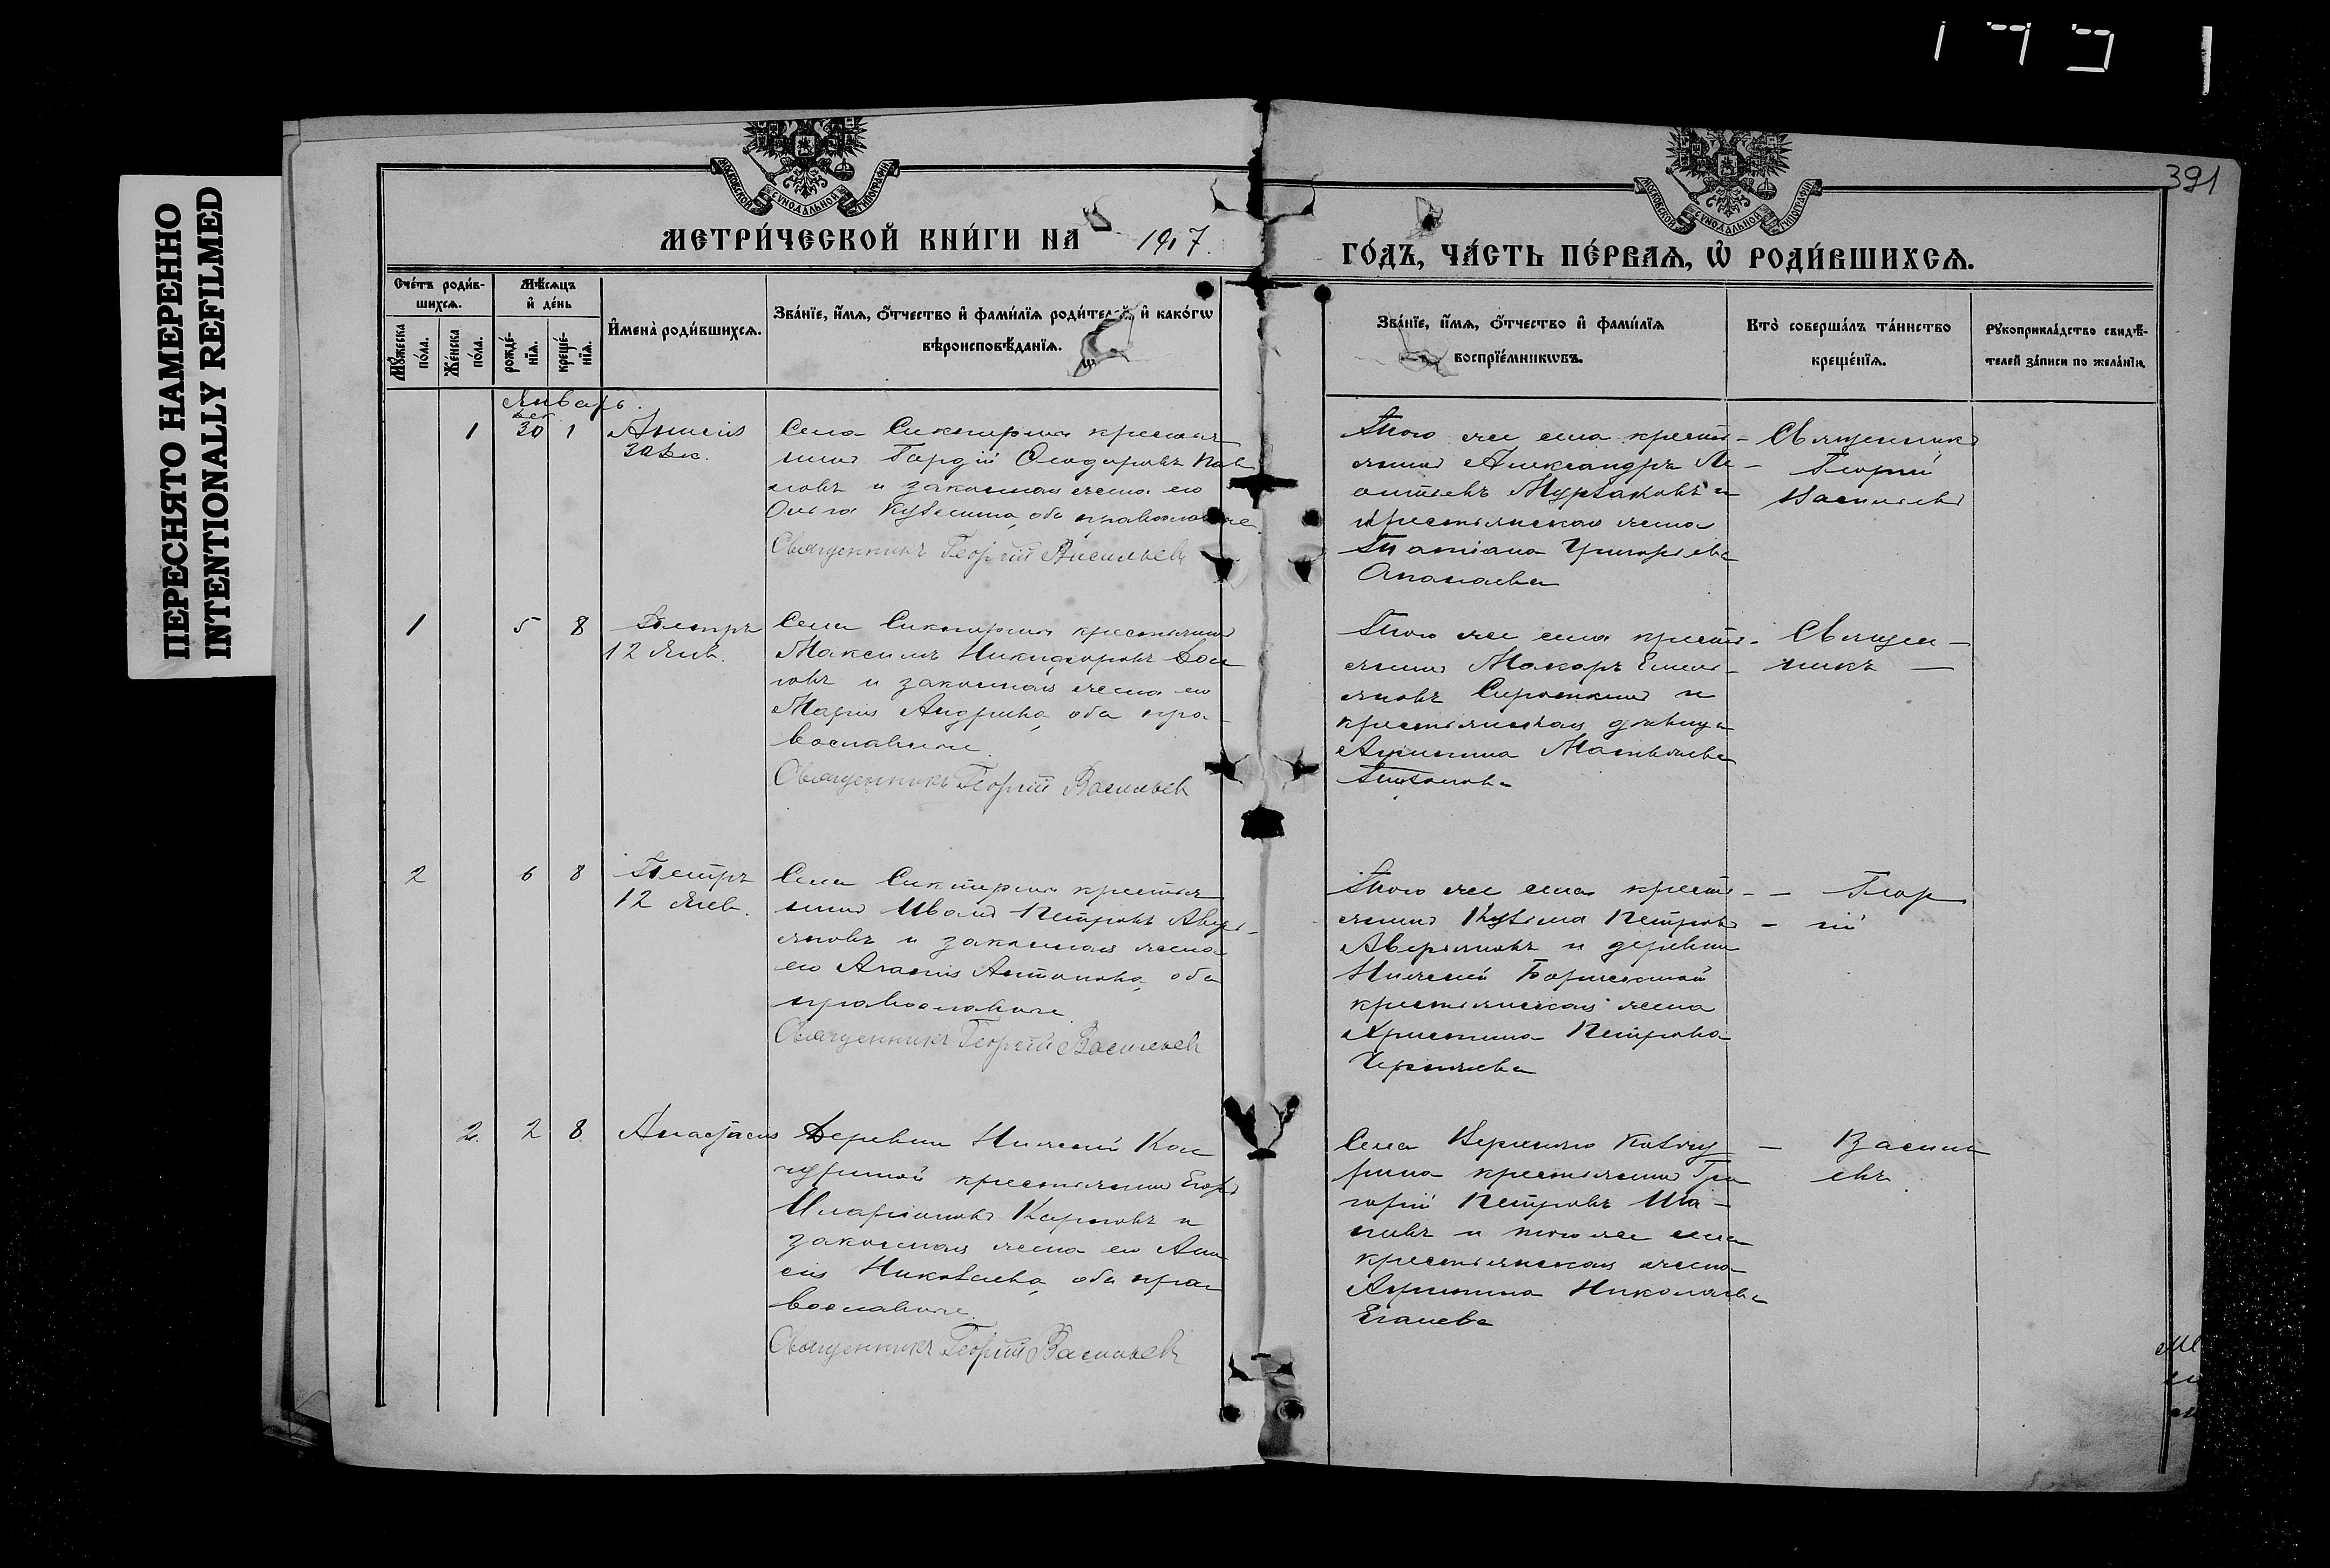 ПЕРЕСНЯТО НАМЕРЕННО
INTENTIONALLY REFILMED
391
МОСКОВСКОЙ СѴНОДАЛЬНОЙ ТИПОГРАФІИ
МОСКОВСКОЙ СѴНОДАЛЬНОЙ ТИПОГРАФІИ
МЕТРИ́ЧЕСКОЙ КНИ́ГИ НА 1917.
ГО́ДЪ, ЧА́СТЬ ПЕ́РВАЯ, Ѡ҆ РОДИ́ВШИХСЯ.
Сче́тъ роди́в-
шихся.
Мѣ́сяцъ
и҆ де́нь
Мꙋ́жеска
по́ла.
Же́нска
по́ла.
рожде́-
нїя.
креще́-
нїя.
И҆мена̀ роди́вшихся.
Зва́нїе, и҆́мя, ѻ҆́тчество и҆ фами́лїя роди́телей, и҆ како́гѡ
вѣроисповѣ́данїя.
Зва́нїе, и҆́мя, ѻ҆́тчество и҆ фами́лїя
воспрїе́мникѡвъ.
Кто̀ соверша́лъ та́инство
креще́нїя.
Рꙋкоприкла́дство свидѣ́-
телей за́писи по жела́нїю.
Январь.
дек
1 30 1 Анисія
30 дек.
Села Сиктерма крестья
нинъ Гордій Ѳеодоровъ Пав
ловъ и законная жена его
Ольга Кузьмина, оба православные
Священникъ Георгій Васильевъ
Того же села кресть-
янинъ Александръ Ле-
онтьевъ и
крестьянская жена
Татіана Григорьева
Священникъ
Георгій
Васильевъ
1 5 8 Петръ
12 Янв.
Села Сиктерма крестьянинъ
Максимъ Никифоровъ
и законная жена его
Марія Андреева, оба пра-
вославные.
Священникъ Георгій Васильевъ
Того же села кресть-
янинъ Макаръ Емель-
яновъ Сироткинъ и
крестьянская дѣвица
Акилина Матвѣева
Священ-
никъ —
2 6 8 Петръ
12 Янв.
Села Сиктерма крестья
нинъ Иванъ Петровъ Аверь-
яновъ и законная жена
его Агафія Антонова, оба
православные
Священникъ Георгій Васильевъ
Того же села кресть-
янинъ Кузьма Петровъ
Аверьяновъ и деревни
Нижней
крестьянская жена
Христина Петрова
— Геор
— гій
2. 2 8. Анастасія
Деревни Нижней Кач
крестьянинъ Егоръ
Иларіоновъ Карповъ и
законная жена его Ани
сія Николаева, оба пра
вославные
Священникъ Георгій Васильевъ
Села
крестьянинъ Гри
горій Петровъ
и того же села
крестьянская жена
Николаева
— Василь
евъ.